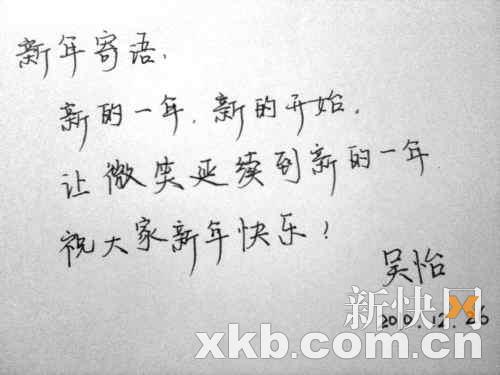 新年寄语.
新的一年.新的开始.
让微笑延续到新的一年.
祝大家新年快乐!
吴怡
新快网
2010.12.26
xkb.com.cn